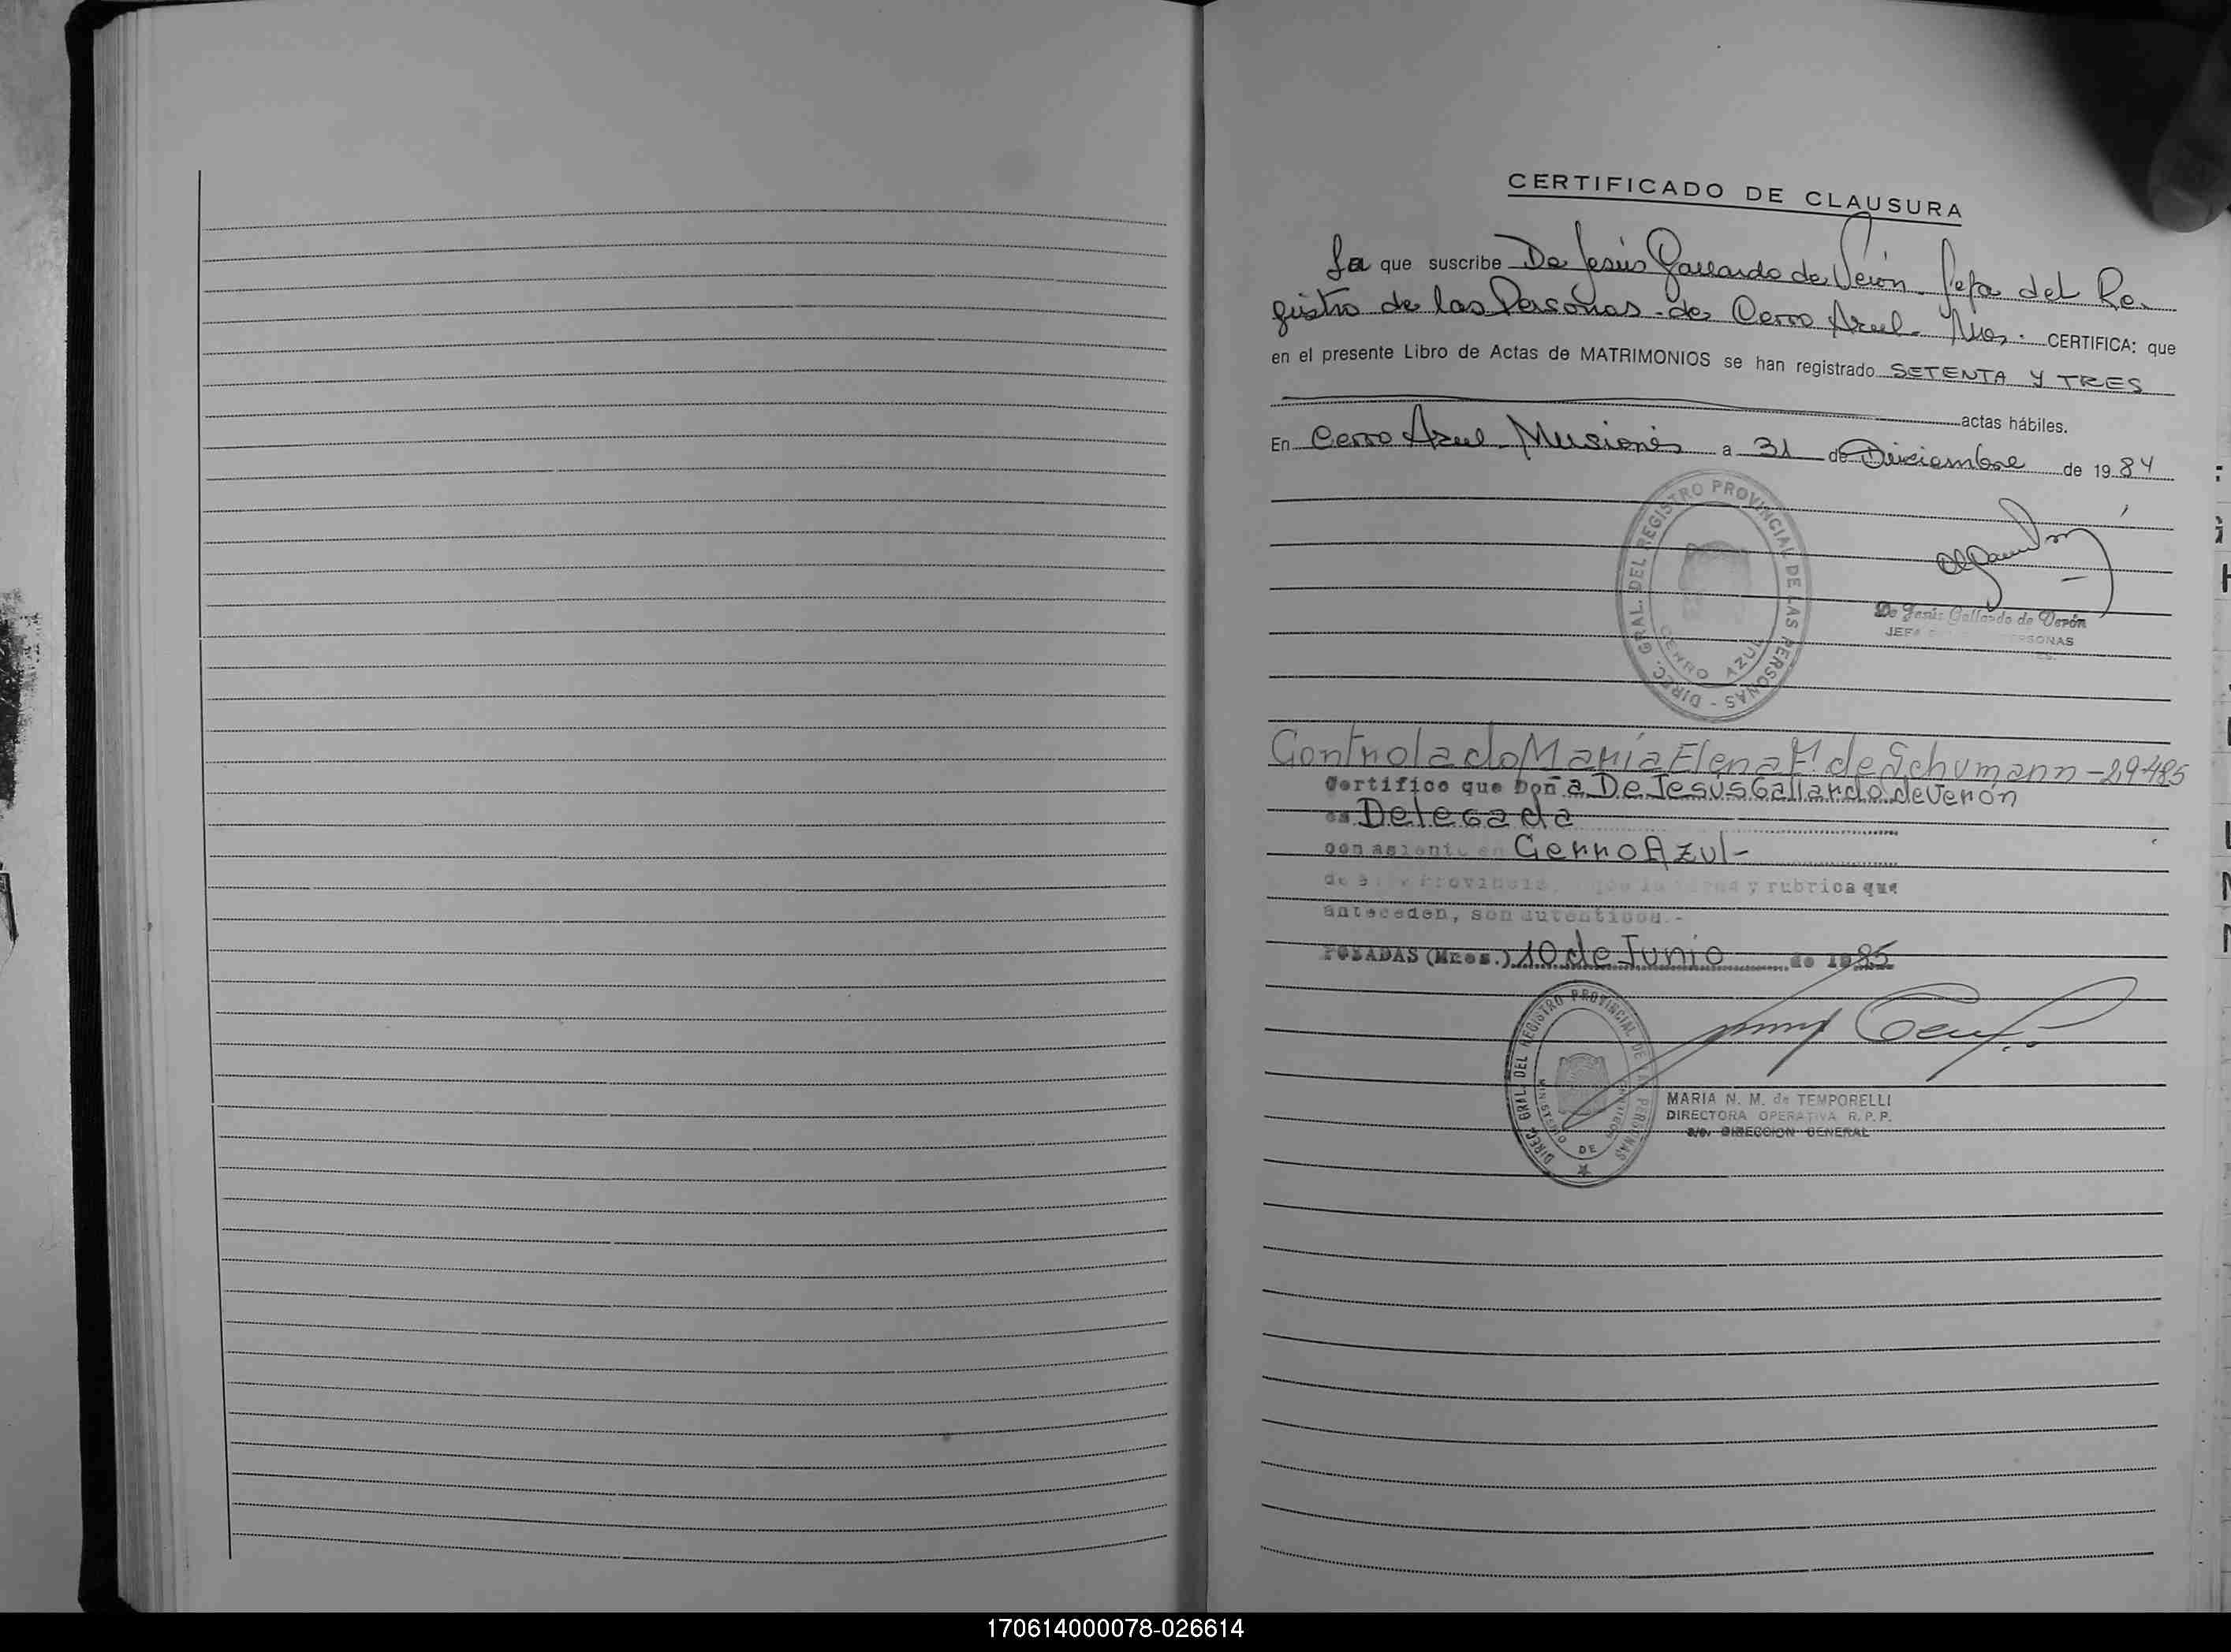 CERTIFICADO DE CLAUSURA
La que suscribe De Jesús Gallardo de Verón. Jefa del Re-
gistro de las Personas de Cerro Azul - Mnes. CERTIFICA: que
en el presente Libro de Actas de MATRIMONIOS se han registrado SETENTA Y TRES
actas hábiles.
En Cerro Azul Misiones a 31 de Diciembre de 1984
DIREC. GRAL. DEL REGISTRO PROVINCIAL DE LAS PERSONAS -
CERRO AZUL
De Jesús Gallardo de Verón
JEFA PERSONAS
Controlado María Elena F. de Schumann - 29-4-85
Certifico que Doña De Jesus Gallardo de Verón
es Delegada
con asiento en Cerro Azul -
de esta Provincia, que la firma y rubrica que
anteceden, son autenticos.-
POSADAS (Mnes.) 10 de Junio de 1985
DIREC. GRAL. DEL REGISTRO PROVINCIAL DE LAS PERSONAS
MINISTERIO DE
MARIA N. M. de TEMPORELLI
DIRECTORA OPERATIVA R. P. P.
a/c. DIRECCION GENERAL
170614000078-026614